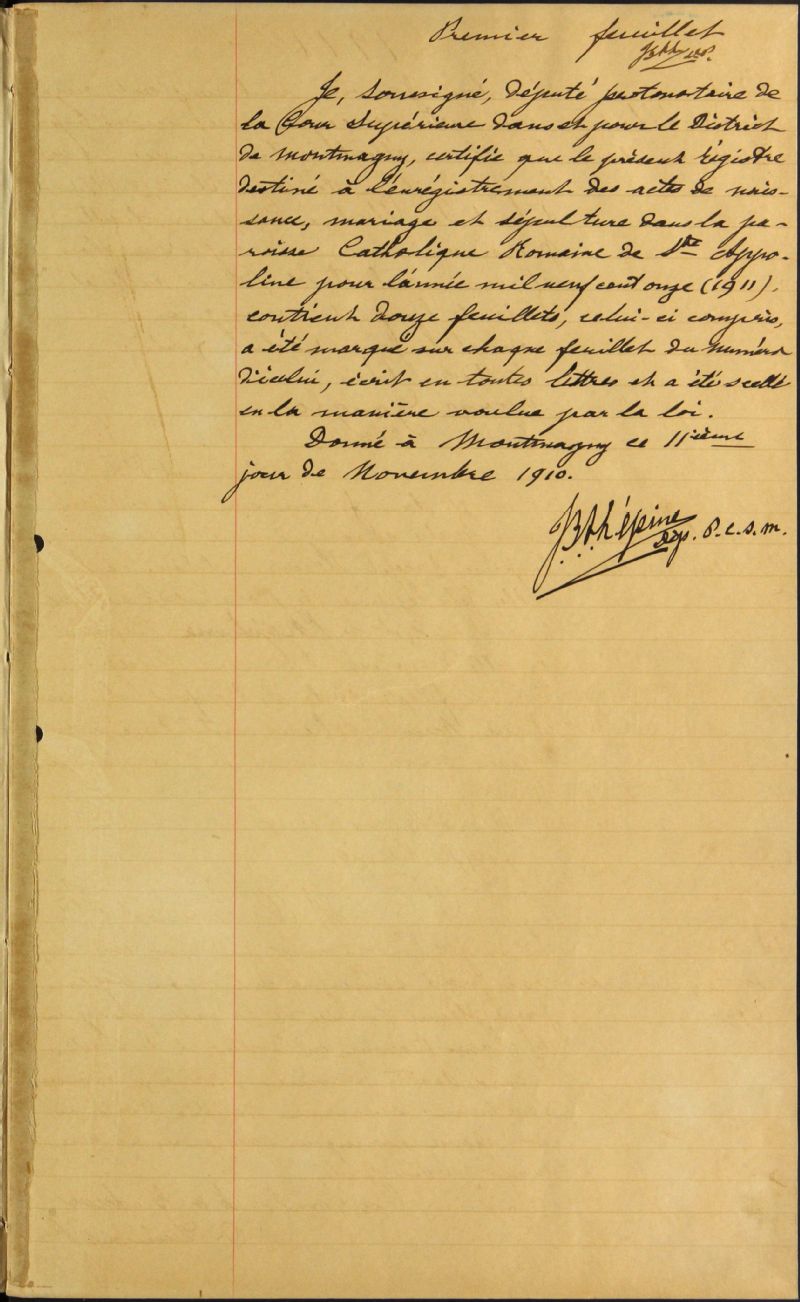 Premier feuillet
Je, soussigné, député protonotaire de
la Cour Supérieure dans et pour le District
de Montmagny, certifie que le présent régistre
destiné à l'enrégistrement des actes de nais-
sance, mariage et sépulture dans la pa-
roisse Catholique Romaine de Ste Appo-
line pour l'année mil neuf cent onze (1911),
contient douze feuillets, celui-ci compris,
a été marqué sur chaque feuillet du numéro
d'icelui, écrit en toutes lettres et a été scellé
en la manière voulue par la loi.
Donné à Montmagny ce 11ième
jour de Novembre 1910.
Lépine
Dep. P.C.S.M.